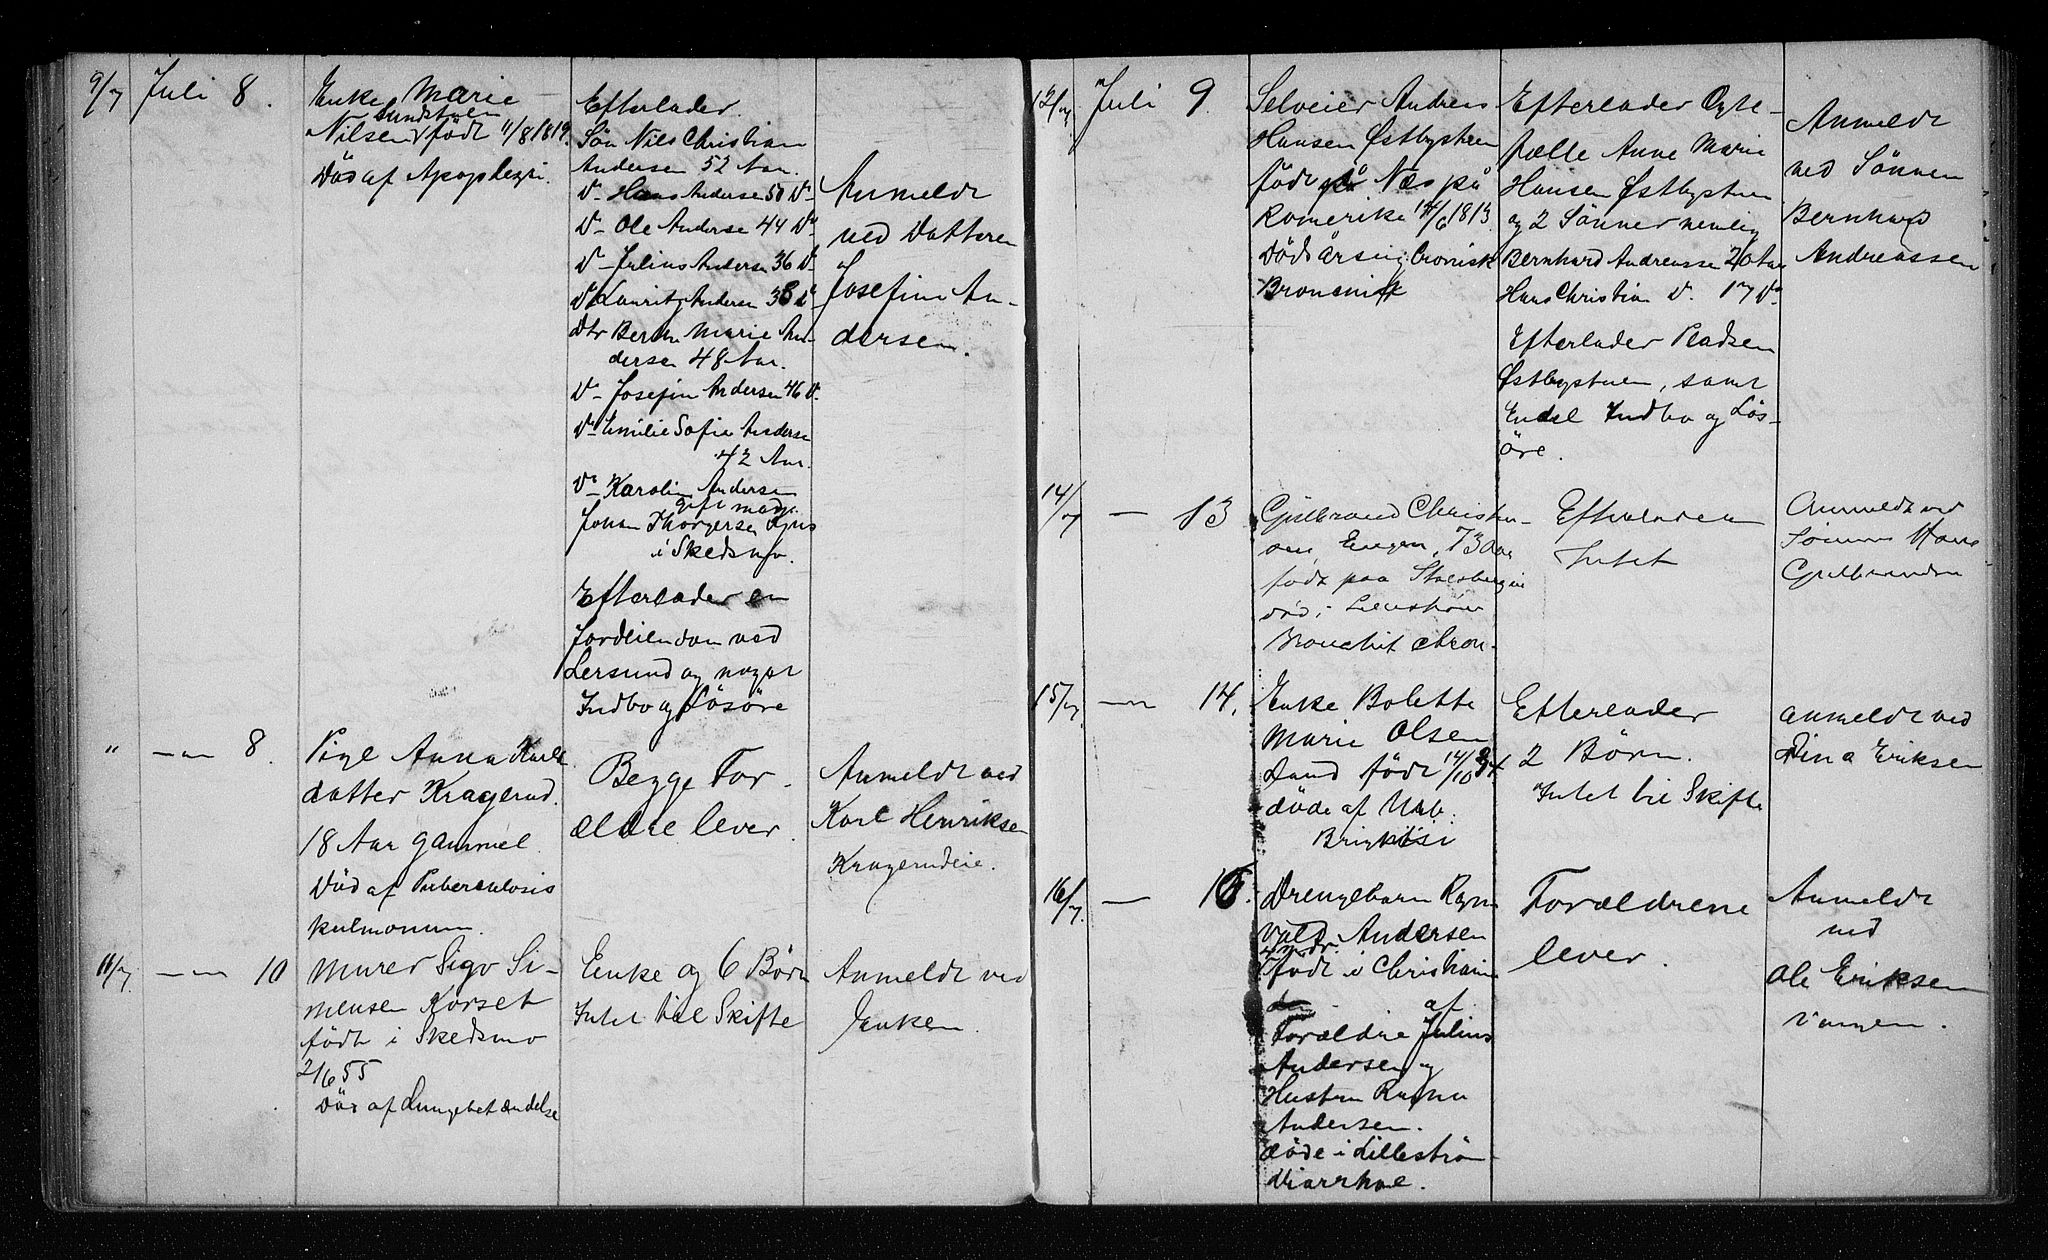 9/7 Juli 8.
Enke Marie
Sundstuen
Nilsen født 11/8 1819.
Död af Apoplexi.
Efterlader
Sön Nils Christian
Andersen 52 Aar.
Do Hans Andersen 50 Do
Do Ole Andersen 44 Do
Do Julius Andersen 36 Do
Do Lauritz Andersen 38 Do
Dtr Berthe Marie An-
dersen 48 Aar.
Do Josefine Andersen 46 Do
Do Emilie Sofie Andersen
42 Aar.
Do Karoline Andersen
gift med
Johan Thorgersen
i Skedsmo.
Efterlader en
Jordeiendom ved
Lersund og noget
Indbo og Løsöre
Anmeldt
ved Datteren
Josefine An-
dersen.
" — 8.
Pige Anna Karls
datter Kragerud.
18 Aar gammel.
Död af Tuberculosis
pulmonum.
Begge For-
ældre lever.
Anmeldt ved
Karl Henriksen
Kragerudeie.
11/7 — 10
Murer Sigv. Si-
mensen Korset
født i Skedsmo
2/6 55
Död af Lungebetændelse
Enke og 6 Börn
Intet til Skifte
Anmeldt ved
Enken.
12/7 Juli 9.
Selveier Andreas
Hansen Østbystuen
født på Næs på
Romerike 14/6 1813.
Dödsårsag: Cronisk
Broncnit
Efterlader Ægte-
fælle Anne Marie
Hansen Østbystuen
og 2 Sønner nemlig
Bernhard Andreassen 20 Aar
Hans Christian Do 17 Do
Efterlader Pladsen
Østbystuen, samt
Endel Indbo og Løs-
öre.
Anmeldt
ved Sønnen
Bernhard
Andreassen
14/7 — 13
Gulbrand Christian-
sen Engen, 73 Aar
født paa Stalsbergeie
död i Lillestrøm
Bronchit chron.
Efterlader
Intet
Anmeldt ved
Sønnen Hans
Gulbrandsen
15/7 — 14.
Enke Bolette
Marie Olsen
Sand født 14/10 34
døde af Mrb.
Brigktisi
Efterlader
2 Børn.
Intet til Skifte
anmeldt ved
Dina Eriksen
16/7 — 15.
Drengebarn Ragn-
vald Andersen
4 mdr.
født i Christiania
af
Forældre Julius
Andersen og
Hustru Ragna
Andersen.
døde i Lillestrøm
Diarrhoe.
Forældrene
lever.
Anmeldt
ved
Ole Eriksen
Vangen.